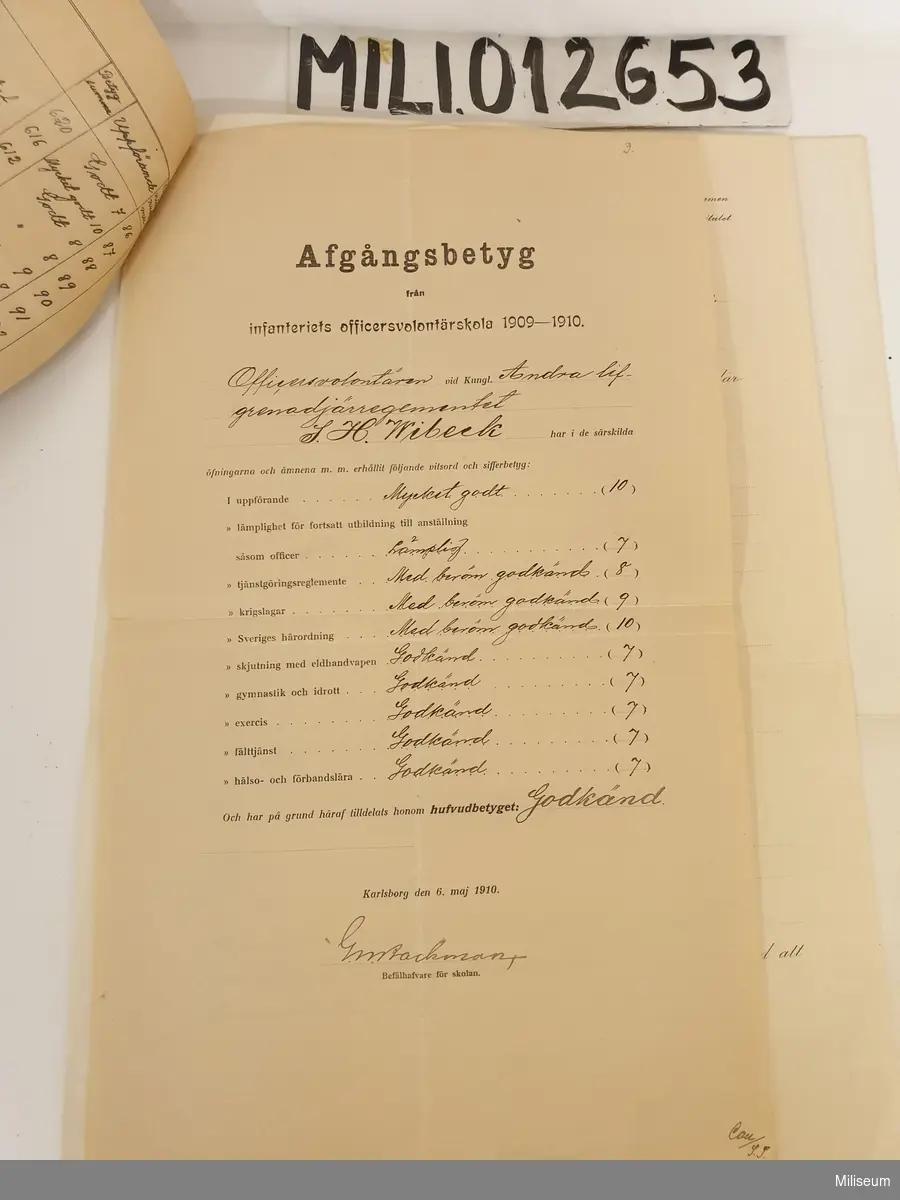 MILI.012653
Betyg
summa
Uppförande
620 Godt 7 86
616 Mycket godt 10 87
612 Godt 8 88
" 8 89
9 90
9 91
3.
Afgångsbetyg
från
infanteriets officersvolontärskola 1909—1910.
Officersvolontären vid Kungl. Andra lif-
grenadjärregementet
S. H. Wibeck har i de särskilda
öfningarna och ämnena m. m. erhållit följande vitsord och sifferbetyg:
I uppförande . . . . . . Mycket godt . . . . . . . (10)
» lämplighet för fortsatt utbildning till anställning
såsom officer . . . . . . Lämplig . . . . . . . . . . (7)
» tjänstgöringsreglemente . . Med beröm godkänd . (8)
» krigslagar . . . . . . . . Med beröm godkänd (9)
» Sveriges härordning . . . . Med beröm godkänd . (10)
» skjutning med eldhandvapen Godkänd . . . . . . . . . . (7)
» gymnastik och idrott . . . Godkänd . . . . . . . . . (7)
» exercis . . . . . . . . Godkänd . . . . . . . . . (7)
» fälttjänst . . . . . . . Godkänd . . . . . . . . . (7)
» hälso- och förbandslära . . Godkänd . . . . . . . . . . (7)
Och har på grund häraf tilldelats honom hufvudbetyget: Godkänd.
Karlsborg den 6. maj 1910.
Befälhafvare för skolan.
men
talet
tär
d att
Miliseum